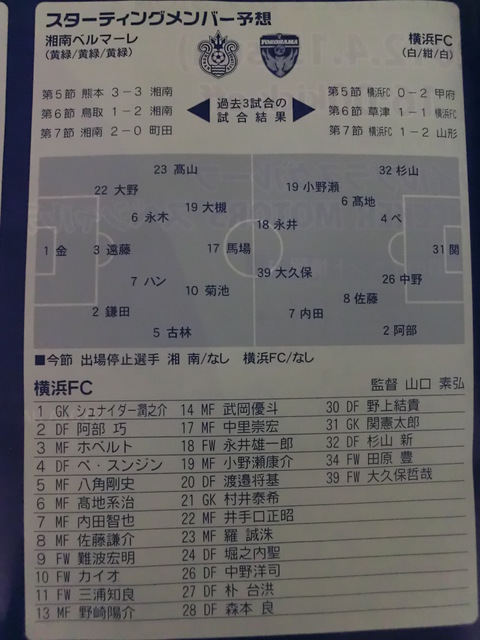 スターティングメンバー予想
湘南ベルマーレ
(黄緑/黄緑/黄緑)
横浜FC
(白/紺/白)
YOKOHAMA
第5節 熊本 3-3 湘南
第6節 鳥取 1-2 湘南
第7節 湘南 2-0 町田
過去3試合の
試合結果
第5節 横浜FC 0-2 甲府
第6節 草津 1-1 横浜FC
第7節 横浜FC 1-2 山形
23 髙山
22 大野
6 永木
19 大槻
1 金
3 遠藤
17 馬場
7 ハン
10 菊池
2 鎌田
5 古林
32 杉山
19 小野瀬
6 髙地
4 ペ
18 永井
31 関
39 大久保
26 中野
8 佐藤
7 内田
2 阿部
■今節 出場停止選手 湘 南/なし 横浜FC/なし
横浜FC
監督 山口 素弘
1 GK シュナイダー潤之介
2 DF 阿部 巧
3 MF ホベルト
4 DF ペ・スンジン
5 MF 八角剛史
6 MF 髙地系治
7 MF 内田智也
8 MF 佐藤謙介
9 FW 難波宏明
10 FW カイオ
11 FW 三浦知良
13 MF 野崎陽介
14 MF 武岡優斗
17 MF 中里崇宏
18 FW 永井雄一郎
19 MF 小野瀬康介
20 DF 渡邉将基
21 GK 村井泰希
22 MF 井手口正昭
23 MF 羅 誠洙
24 DF 堀之内聖
26 DF 中野洋司
27 DF 朴 台洪
28 DF 森本 良
30 DF 野上結貴
31 GK 関憲太郎
32 DF 杉山 新
34 FW 田原 豊
39 FW 大久保哲哉